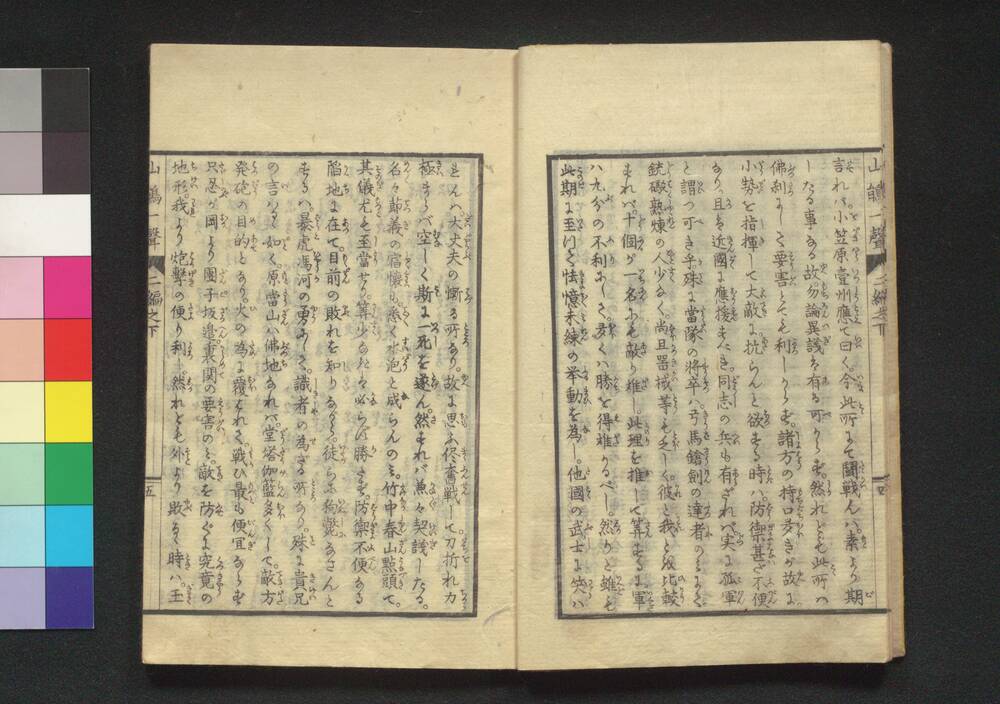 山鵑一聲 二編之下 四
言れバ小笠原壹州應て曰く今此所にて鬪戰んハ素より期
したる事なる故勿論異議ハ有る可からず然れども此所ハ
佛刹にして要害とても利しからず諸方の持口多きが故に
小勢を指揮して大敵に抗らんと欲する時ハ防禦甚だ不便
なり且ハ近國に應援すべき同志の兵も有ざれバ実に孤軍
と謂つ可き乎殊に當隊の將卒ハ弓馬鎗劍の達者のミ多く
銃礟熟煉の人少なく尚且器械等も乏しく彼と我とを比較
すれバ十個が一名にも敵し難し此理を推して算するに軍
ハ九分の不利にして多くハ勝を得難かるべし然りと雖も
此期に至りて怯憶未練の挙動を為し他國の武士に笑ハ
れんハ大丈夫の慚る所なり故に思ふ侭奮戰して刀折れ力
極まらバ空しく斯に一死を遂ん然すれバ兼々契議したる
名々節義の宿懐も悉く水泡と成らんのミ竹中春山點頭て
其儀尤も至當せり算少なき者ハ必らず勝さず防禦不便なる
陥地に在て目前の敗れを知りながら徒らに狗斃なさんと
するハ暴虎馮河の勇にして識者の為ざる所なり殊に貴兄
の言るゝ如く原當山ハ佛地なれバ堂塔伽藍多くして敵方
発砲の目的となり火の為に覆はれて戰ひ最も便宜ならず
只忍が岡より團子坂邉裏関の要害のミ敵を防ぐに究竟の
地形我より炮撃の便り利し然れども外より敗るゝ時ハ玉
山鵑一聲 二編之下 五